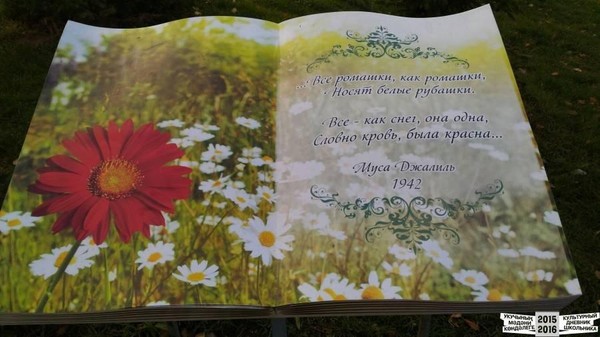 ...Все ромашки, как ромашки,
Носят белые рубашки.
Все - как снег, она одна,
Словно кровь, была красна...
Муса Джалиль
1942
УКУЧЫНЫҢ
МӘДӘНИ
КӨНДӘЛЕГЕ
2015
2016
КУЛЬТУРНЫЙ
ДНЕВНИК
ШКОЛЬНИКА